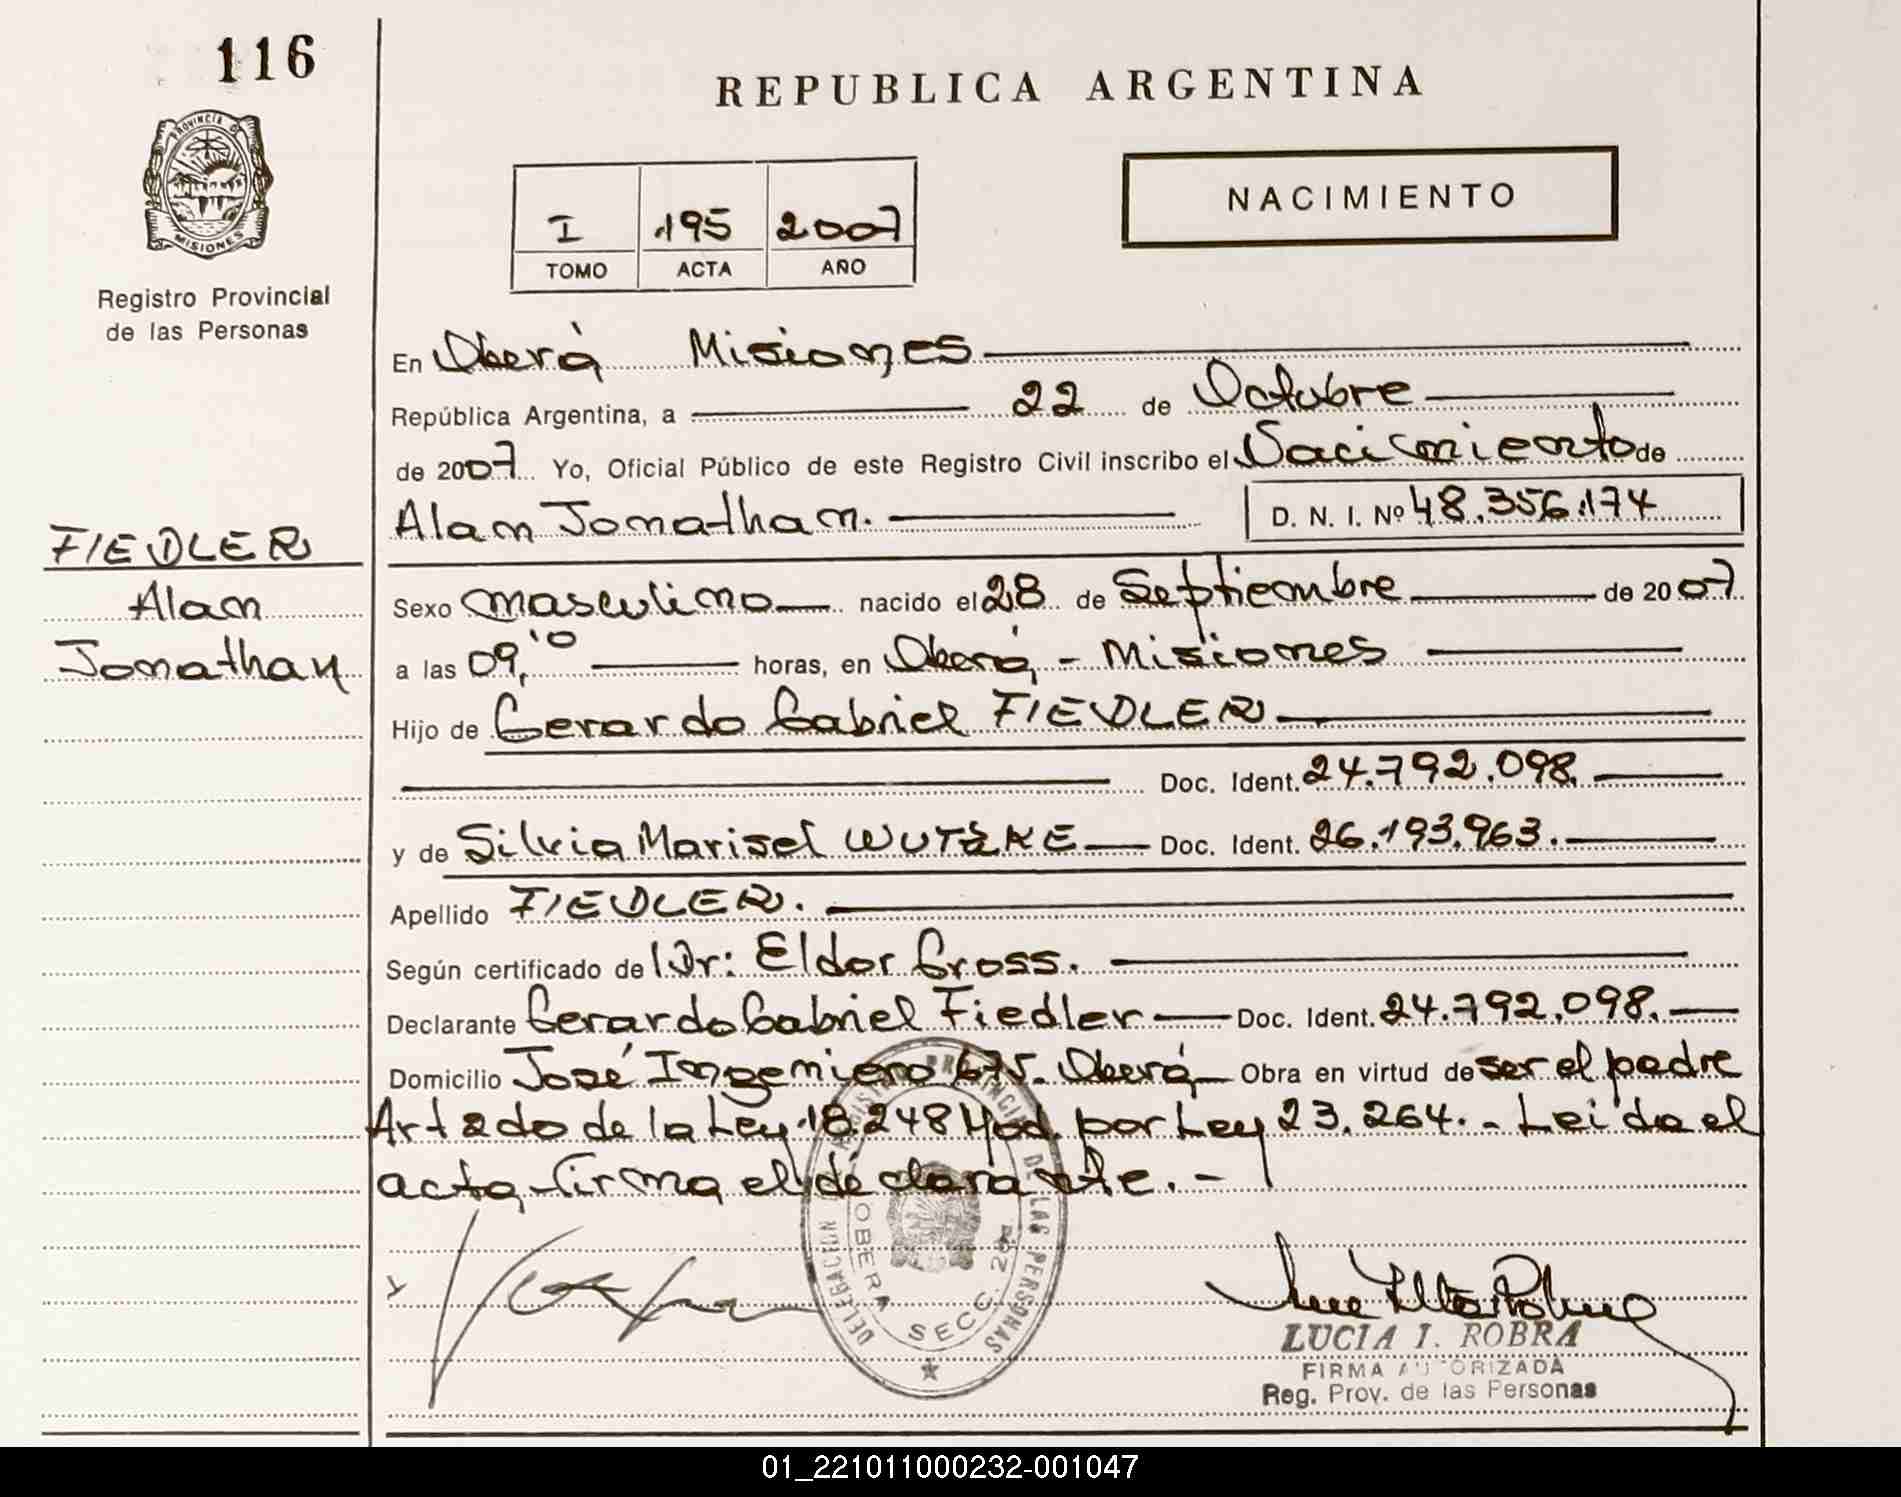 116
REPUBLICA ARGENTINA
PROVINCIA DE
MISIONES
Registro Provincial
de las Personas
NACIMIENTO
I 195 2007
TOMO ACTA AÑO
En Oberá Misiones
República Argentina, a 22 de Octubre
de 2007 Yo, Oficial Público de este Registro Civil inscribo el Nacimiento de
Alan Jonathan. D. N. I. Nº 48.356.174
FIEDLER
Alan
Jonathan
Sexo masculino nacido el 28 de Septiembre de 2007
a las 09,10 horas, en Oberá - Misiones
Hijo de Gerardo Gabriel FIEDLER
Doc. Ident. 24.792.098.
y de Silvia Marisel WUTZKE Doc. Ident. 26.193.963.
Apellido FIEDLER.
Según certificado de Dr: Eldor Gross.
Declarante Gerardo Gabriel Fiedler Doc. Ident. 24.792.098.
Domicilio José Ingeniero 675. Oberá Obra en virtud de ser el padre
Art 2do de la Ley 18.248 Mod. por Ley 23.264. - Leida el
acta firma el declarante. -
DELEGACION REGISTRO PROVINCIAL DE LAS PERSONAS
OBERA SECC. 2da
LUCIA I. ROBRA
FIRMA AUTORIZADA
Reg. Prov. de las Personas
01_221011000232-001047